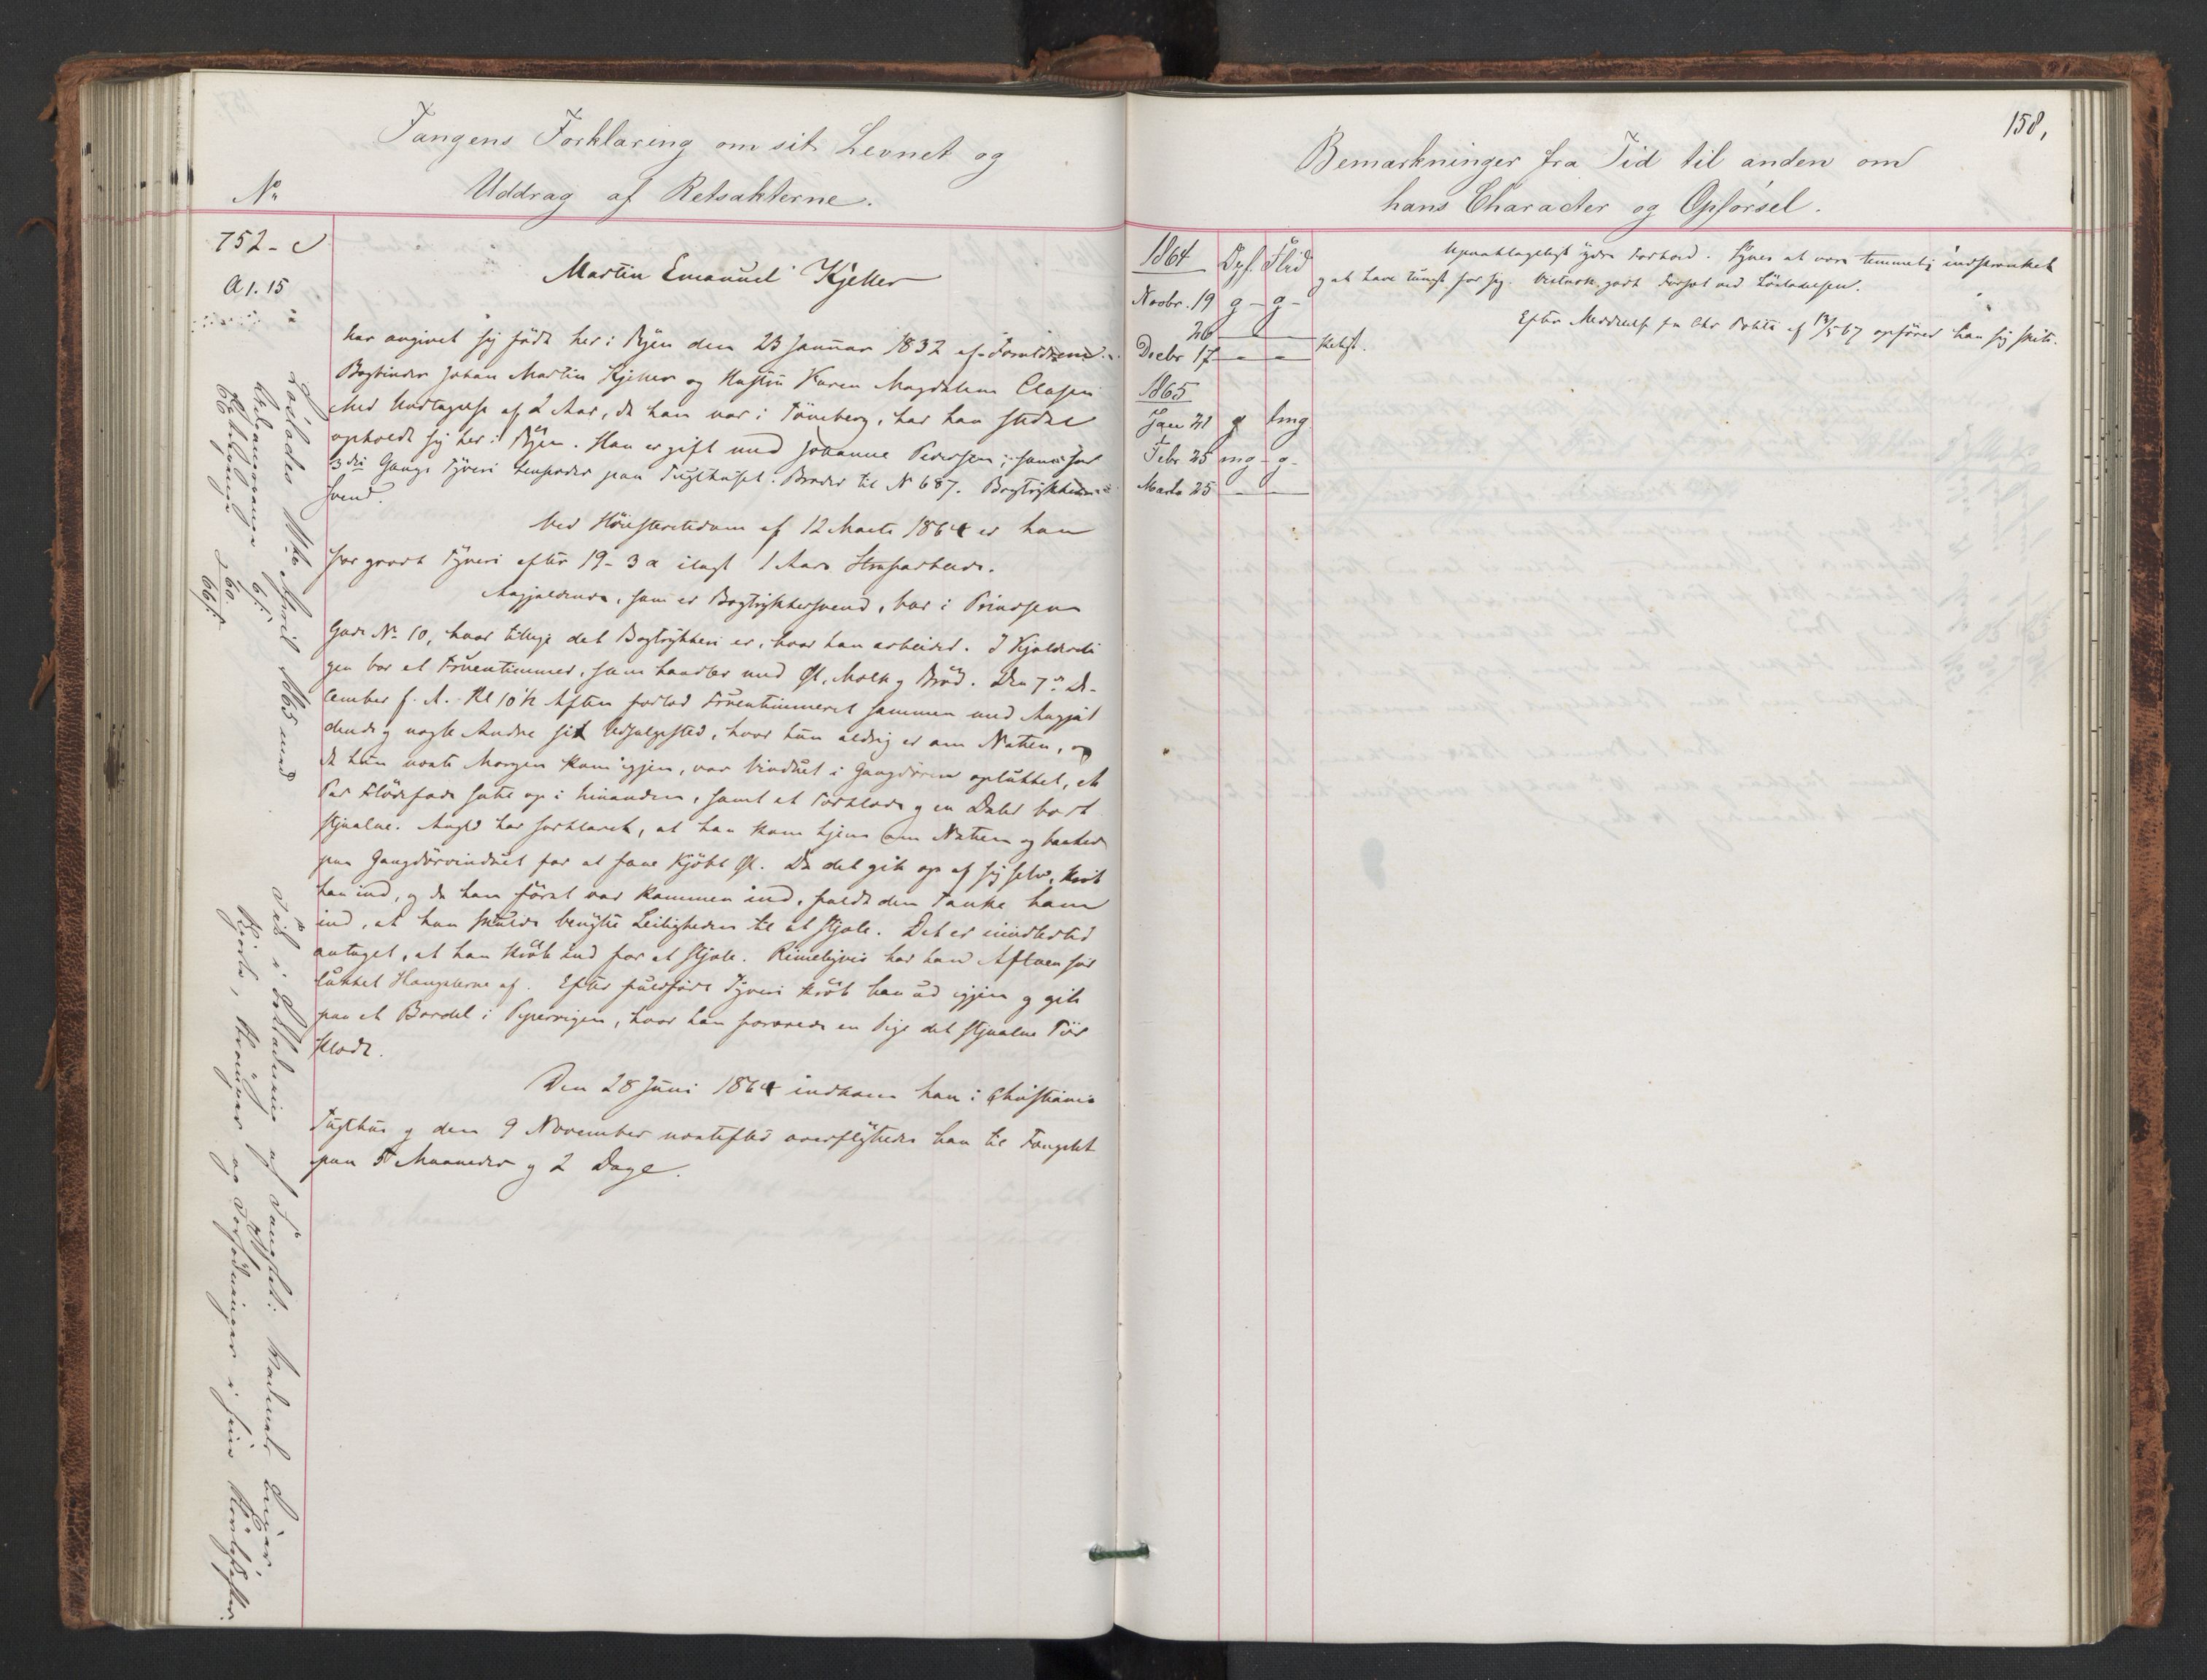 Fangens Forklaring om sit Levnet og
Uddrag af Retsakterne.
No
752 -
A 1. 15
Martin Emanuel Kjeller
har angivet sig født her i Byen den 23 Januar 1832 af Forældrene
Bogbinder Johan Martin Kjeller og Hustru Karen Magdalena Clasen
Med Undtagelse af 2 Aar, da han var i Tönsberg, har han stedse
opholdt sig her i Byen. Han er gift med Johanne Pedersen,
3die Gangs Tyveri hensidder paa Tugthuset. Broder til N 687. Bogtrykker-
svend.
Ved Höiesteretsdom af 12 Marts 1864 er han
for grovt Tyveri efter 19-3 a ilagt 1 Aars Strafarbeide.
Angjældende, som er Bogtrykkersvend, bor i Prindsens
Gade No 10, hvor tillige det Bogtrykkeri er, hvor han arbeider. I Kjelderleili
gen bor et Fruentimmer, som handler med Øl, Melk og Bröd. Den 7de De-
cember f. A. Kl 10½ Aften forlod Fruentimmeret sammen med Angjæl
dende og nogle Andre sit Udsalgssted, hvor hun aldrig er om Natten, og
da hun næste Morgen kom igjen, var Vinduet i Gangdören oplukket, et
Par Flödefade satte op i hinanden, samt et Törklæde og en Daler bort
stjaalne. Angjld har forklaret, at han kom hjem om Natten og bankede
paa Gangdörvinduet for at faae kjöbt Øl. Da det gik op af sig selv, kröb
han ind, og da han först var kommen ind, faldt den Tanke ham
ind, at han skulde benytte Leiligheden til at stjæle. Det er imidlertid
antaget, at han kröb ind for at stjæle. Rimeligvis har han Aftenen för
lukket Hangslerne af. Efter fuldfört Tyveri kröb han ud igjen og gik
paa et Bordel i Pipervigen, hvor han forærede en Pige det stjaalne Tör
klæde.
Den 28 Juni 1864 indkom han i Christiania
Tugthus og den 9 November næstefter overflyttedes han til Fængslet
paa 5 Maaneder og 2 Dage.
Löslades 11te April 1865 med
Fik i Beklædning af Fængslet:
Skjorte, Strömper og
158,
Bemærkninger fra Tid til anden om
hans Character og Opførsel.
1864 Opf. Flid
Novbr. 19 g - g -
26
Decbr 17 - -
1865
Jan 21 g tmg
Febr 25 mg - g -
Marts 25 - -
Upaaklageligt ydre Forhold. Synes at være temmelig indskrænket
og at have tungt for sig. godt Forsæt ved Löslatelsen.
Efter Meddelelse fra Chr Politi af 13/5 67 opförer han sig skik-
keligt.